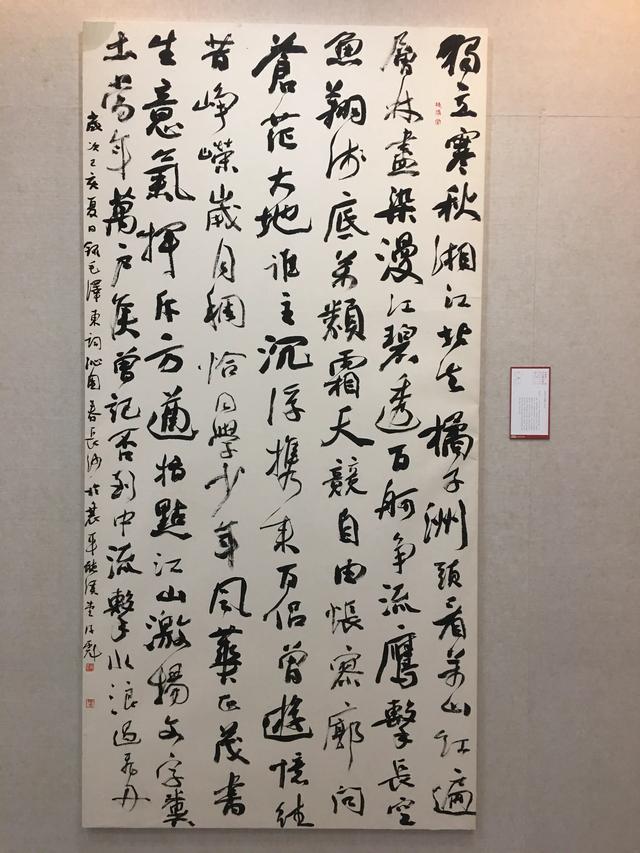 獨立寒秋湘江北去橘子洲頭看萬山紅遍
層林盡染漫江碧透百舸争流鷹擊長空
魚翔淺底萬類霜天競自由悵寥廓問
蒼茫大地誰主沉浮攜來百侶曾遊憶往
昔崢嶸歲月稠恰同學少年風華正茂書
生意氣揮斥方遒指點江山激揚文字糞
土當年萬戶侯曾記否到中流擊水浪遏飛舟
歲次己亥夏日錄毛澤東詞沁園春長沙於